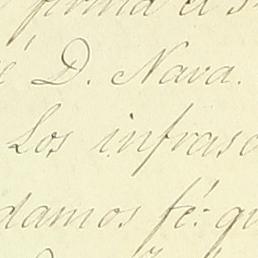 firma el
é D. Nava.
Los infrasc
damos fé: qu